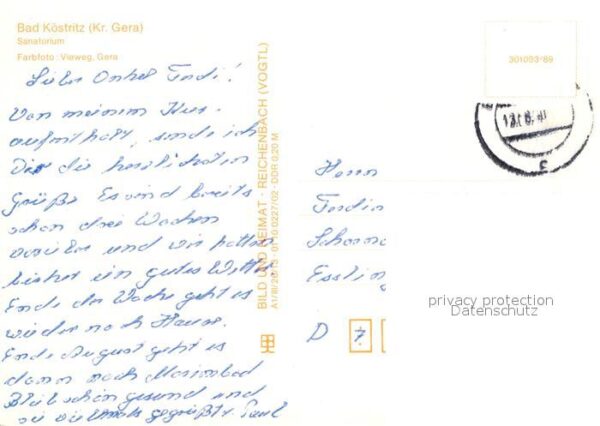 Bad Köstritz (Kr. Gera)
Sanatorium
Farbfoto: Vieweg, Gera
Lieber Onkel Ferdi!
Von meinem Kur-
aufenthalt, sende ich
Dir die herzlichsten
Grüße. Es sind bereits
schon drei Wochen
vorüber und wir hatten
bisher ein gutes Wetter
Ende der Woche geht es
wieder nach Hause.
Ende August geht es
dann nach Marienbad
Bleib schön gesund und
sei vielmals gegrüßt v. Paul
BILD UND HEIMAT · REICHENBACH (VOGTL)
A1/III/26/13 01 10 0227/02 · DDR 0,20 M
301093/89
Herrn
Ferdin
Esslin
D 7
privacy protection
Datenschutz